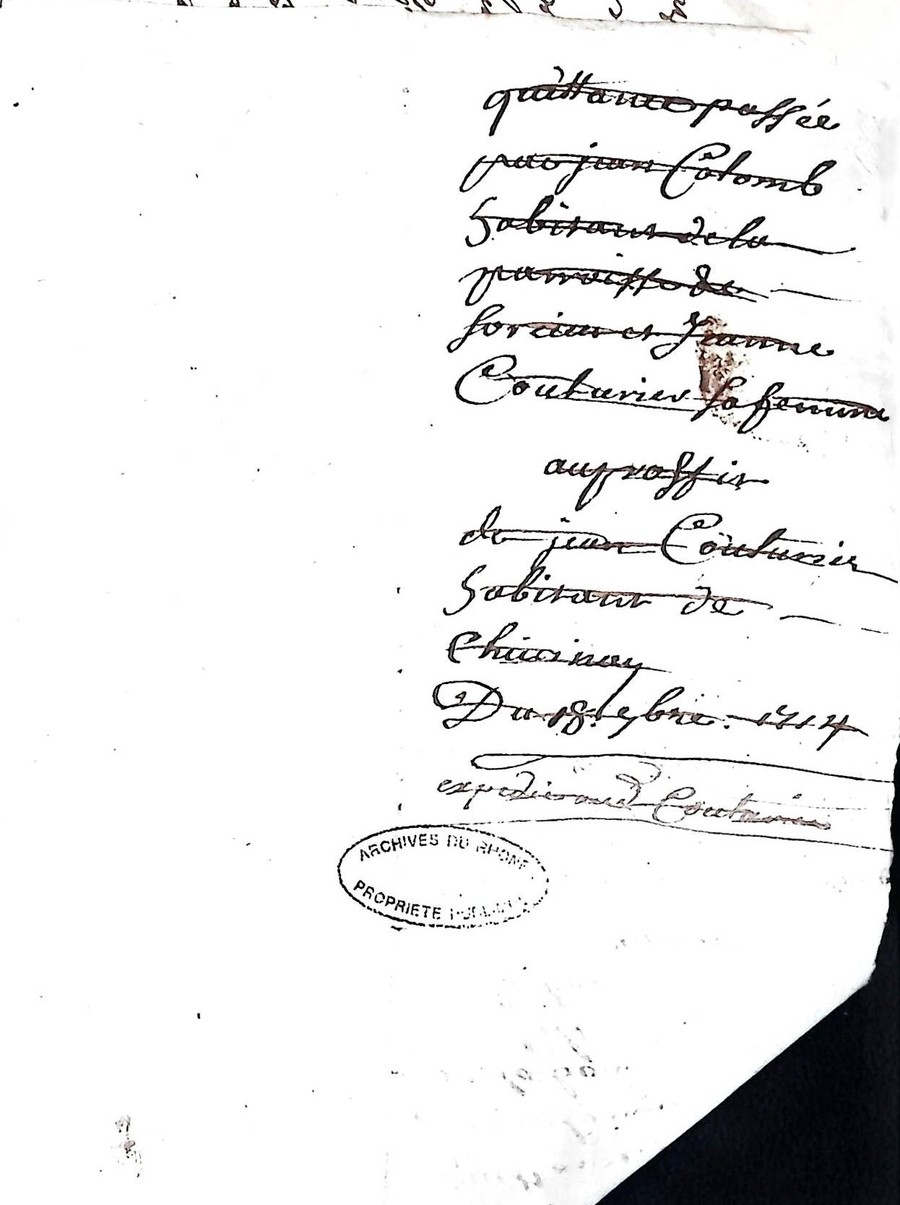 quittance passée
par jean Colomb
habitant de la
parroisse de
et Jeanne
Couturier sa femme
au proffit
de jean Couturier
habitant de
Du 18. 9bre. 1714
expedié aud Couturier
ARCHIVES DU RHONE
PROPRIETE